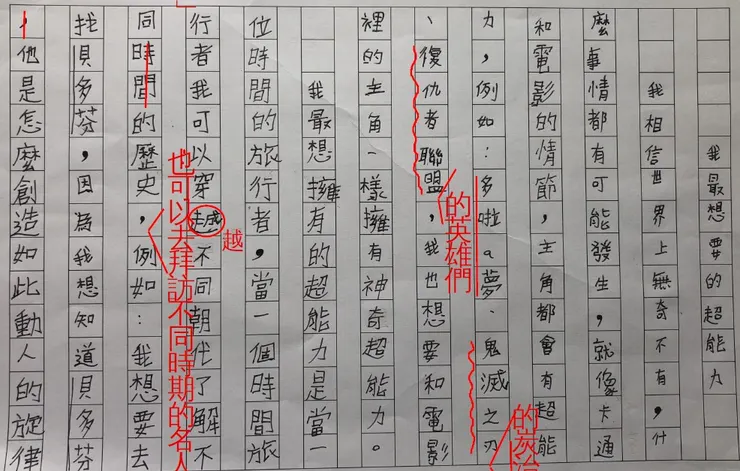 我最想要的超能力
我相信世界上無奇不有，什
麼事情都有可能發生，就像卡通
和電影的情節，主角都會有超能
力，例如：多啦a夢、鬼滅之刃
的炭治
、復仇者聯盟，我也想要和電影
的英雄們
裡的主角一樣擁有神奇超能力。
我最想擁有的超能力是當一
位時間的旅行者，當一個時間旅
行者我可以穿越不同朝代了解不
越
同時間的歷史，例如：我想要去
也可以去拜訪不同時期的名人
找貝多芬，因為我想知道貝多芬
，他是怎麼創造如此動人的旋律